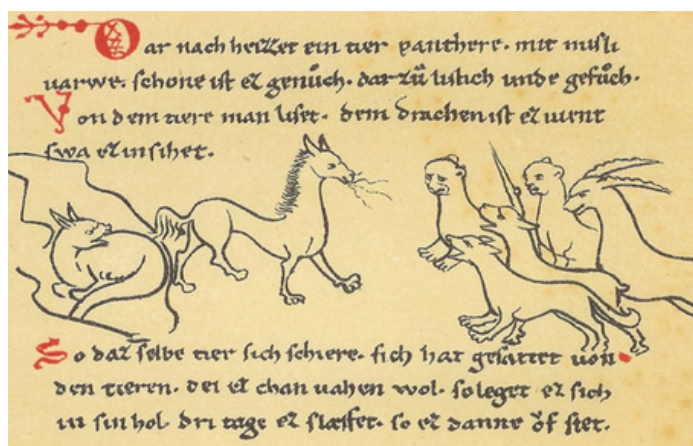 Dar nach heizzet ein tier panthere. mit misli
uarwe. schone ist ez genůch. dar zů listich unde gefůch.
Von dem tiere man liset. dem drachen ist ez uient
swa ez in sihet.
So daz selbe tier sich schiere. sich hat gesattet uon
den tieren. dei ez chan uahen wol. so leget ez sich
in sin hol. dri tage ez slæffet. so ez danne ŏf stet.